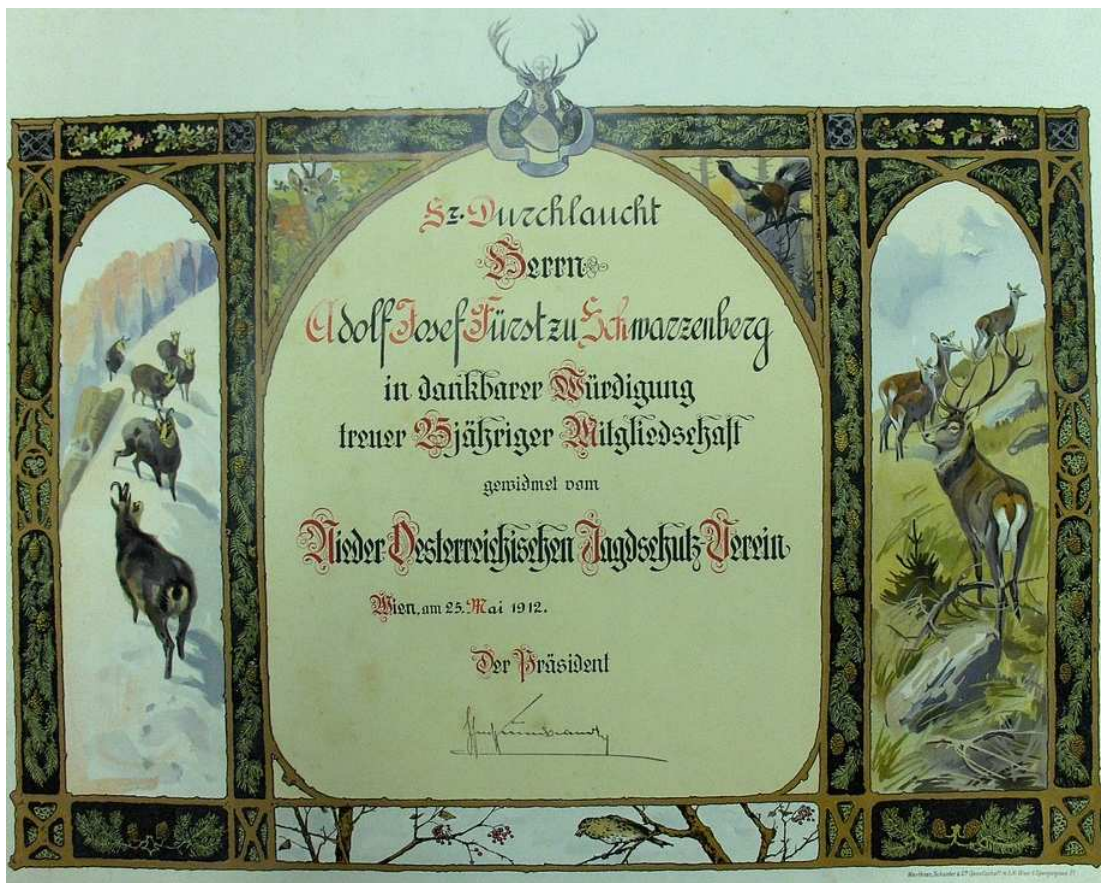 Sr. Durchlaucht
Herrn
Adolf Josef Fürst zu Schwarzenberg
in dankbarer Würdigung
treuer 25jähriger Mitgliedschaft
gewidmet vom
Nieder Oesterreichischen Jagdschutz-Verein
Wien, am 25. Mai 1912.
Der Präsident